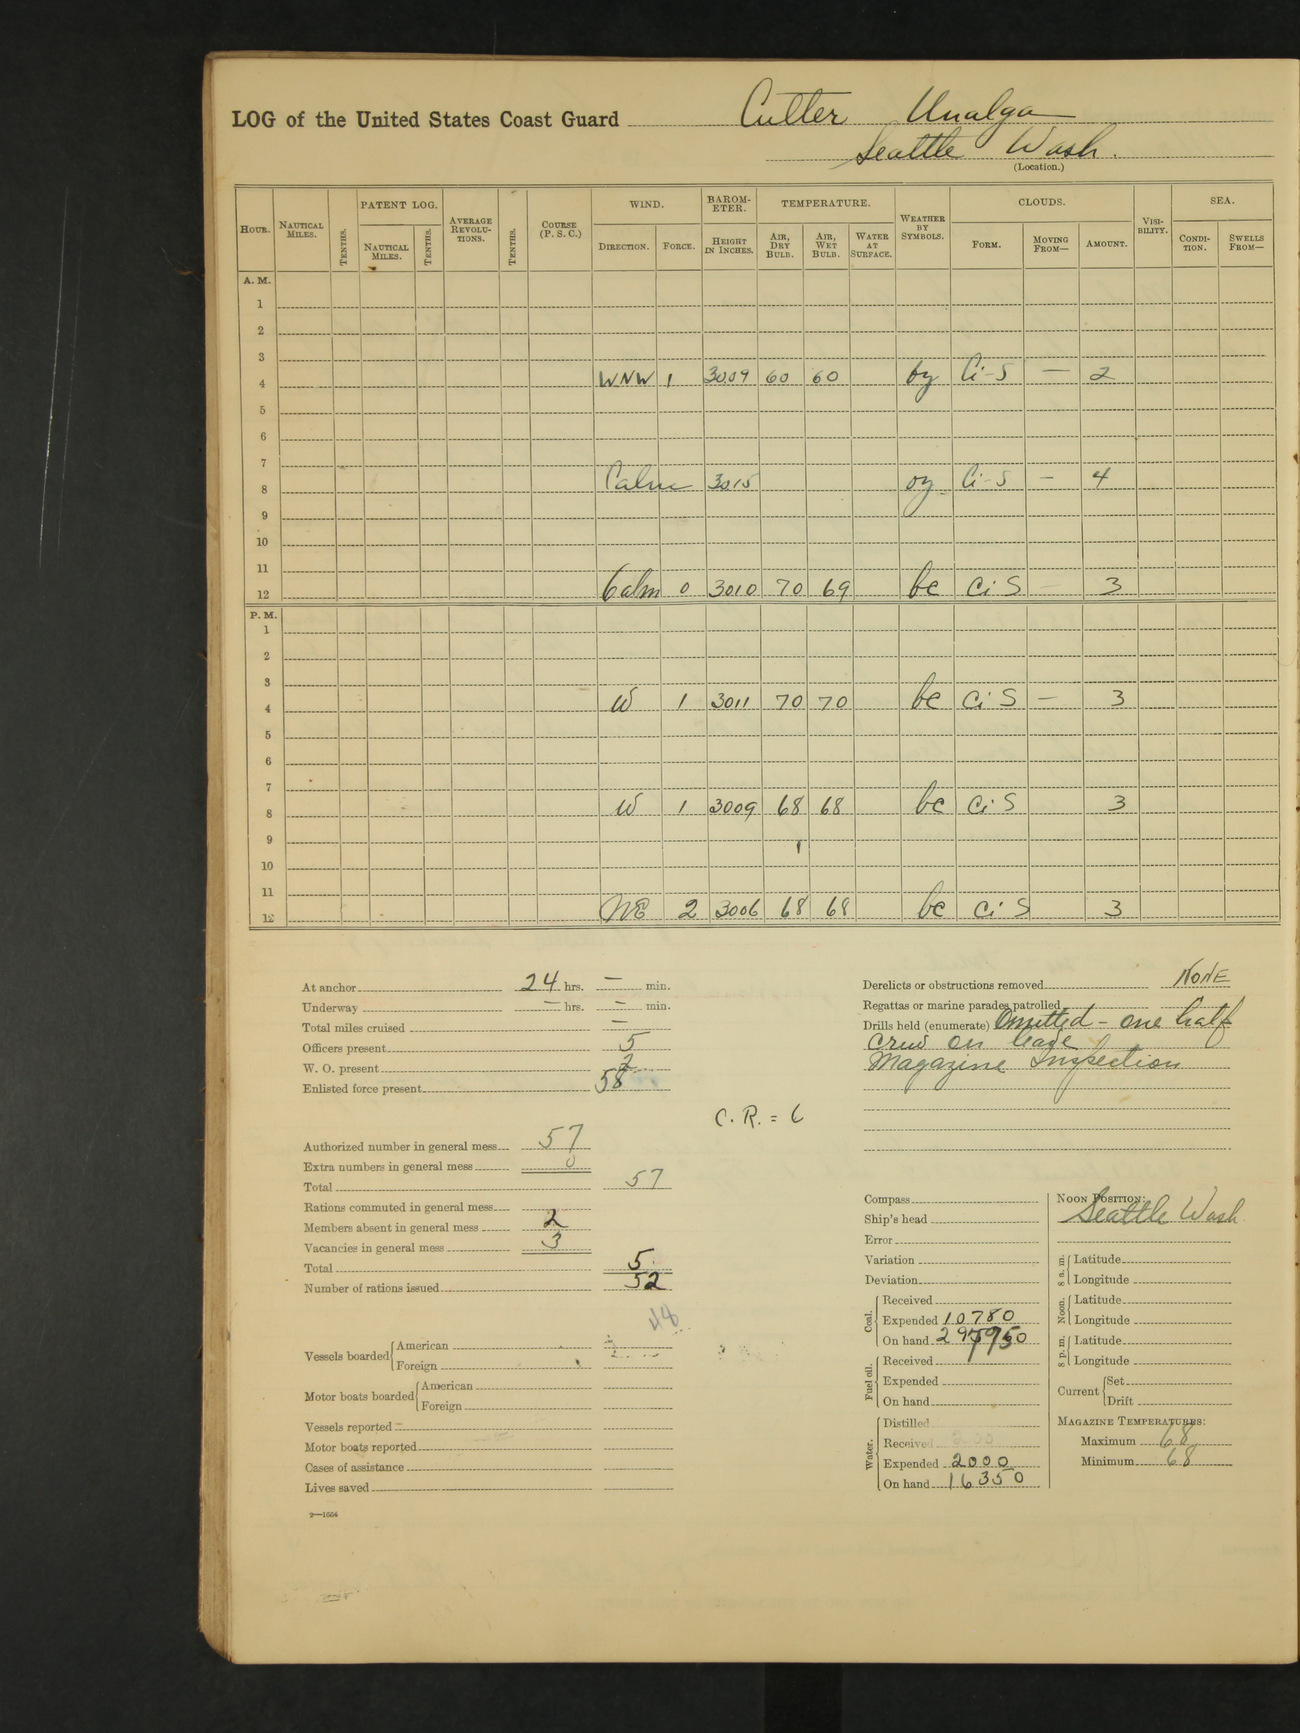 LOG of the United States Coast Guard Cutter Unalga
Seattle Wash.
(Location.)
HOUR. NAUTICAL MILES. TENTHS. PATENT LOG. NAUTICAL MILES. TENTHS. AVERAGE REVOLUTIONS. TENTHS. COURSE (P. S. C.) WIND. DIRECTION. FORCE. BAROMETER. HEIGHT IN INCHES. TEMPERATURE. AIR, DRY BULB. AIR, WET BULB. WATER AT SURFACE. WEATHER BY SYMBOLS. CLOUDS. FORM. MOVING FROM— AMOUNT. VISIBILITY. SEA. CONDITION. SWELLS FROM—
A. M.
1
2
3
4 WNW 1 3009 60 60 by Ci-S — 2
5
6
7
8 Calm 3015 oz Ci-S — 4
9
10
11
12 Calm 0 3010 70 69 bc Ci S 3
P. M.
1
2
3
4 W 1 3011 70 70 bc Ci S — 3
5
6
7
8 W 1 3009 68 68 bc Ci S 3
9
10
11
12 NE 2 3006 68 68 bc Ci S 3
At anchor 24 hrs. — min.
Underway — hrs. — min.
Total miles cruised —
Officers present 5
W. O. present 2
Enlisted force present 58
C. R. = 6
Authorized number in general mess 57
Extra numbers in general mess 0
Total 57
Rations commuted in general mess
Members absent in general mess 2
Vacancies in general mess 3
Total 5
Number of rations issued 52
44
Vessels boarded American
Foreign
Motor boats boarded American
Foreign
Vessels reported
Motor boats reported
Cases of assistance
Lives saved
2—1664
Derelicts or obstructions removed NONE
Regattas or marine parades patrolled
Drills held (enumerate) Omitted - one half
crew on leave
Magazine Inspection
Compass
Ship's head
Error
Variation
Deviation
Coal. Received
Expended 10780
On hand
Fuel oil. Received
Expended
On hand
Water. Distilled
Received
Expended 2000
On hand 16350
NOON POSITION:
Seattle Wash
8 a. m. Latitude
Longitude
Noon. Latitude
Longitude
8 p. m. Latitude
Longitude
Current Set
Drift
MAGAZINE TEMPERATURES:
Maximum 68
Minimum 68